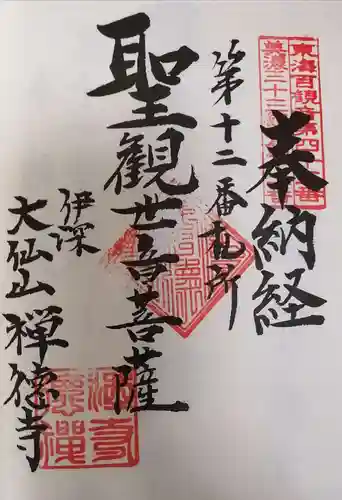 奉納経
東海百観音第四十五番
美濃三十三
第十二番札所
聖觀世音菩薩
伊深
大仙山禅徳寺